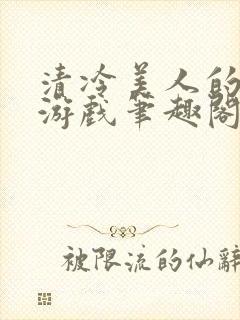 清冷美人的
游戏笔趣阁
被限流的仙辞